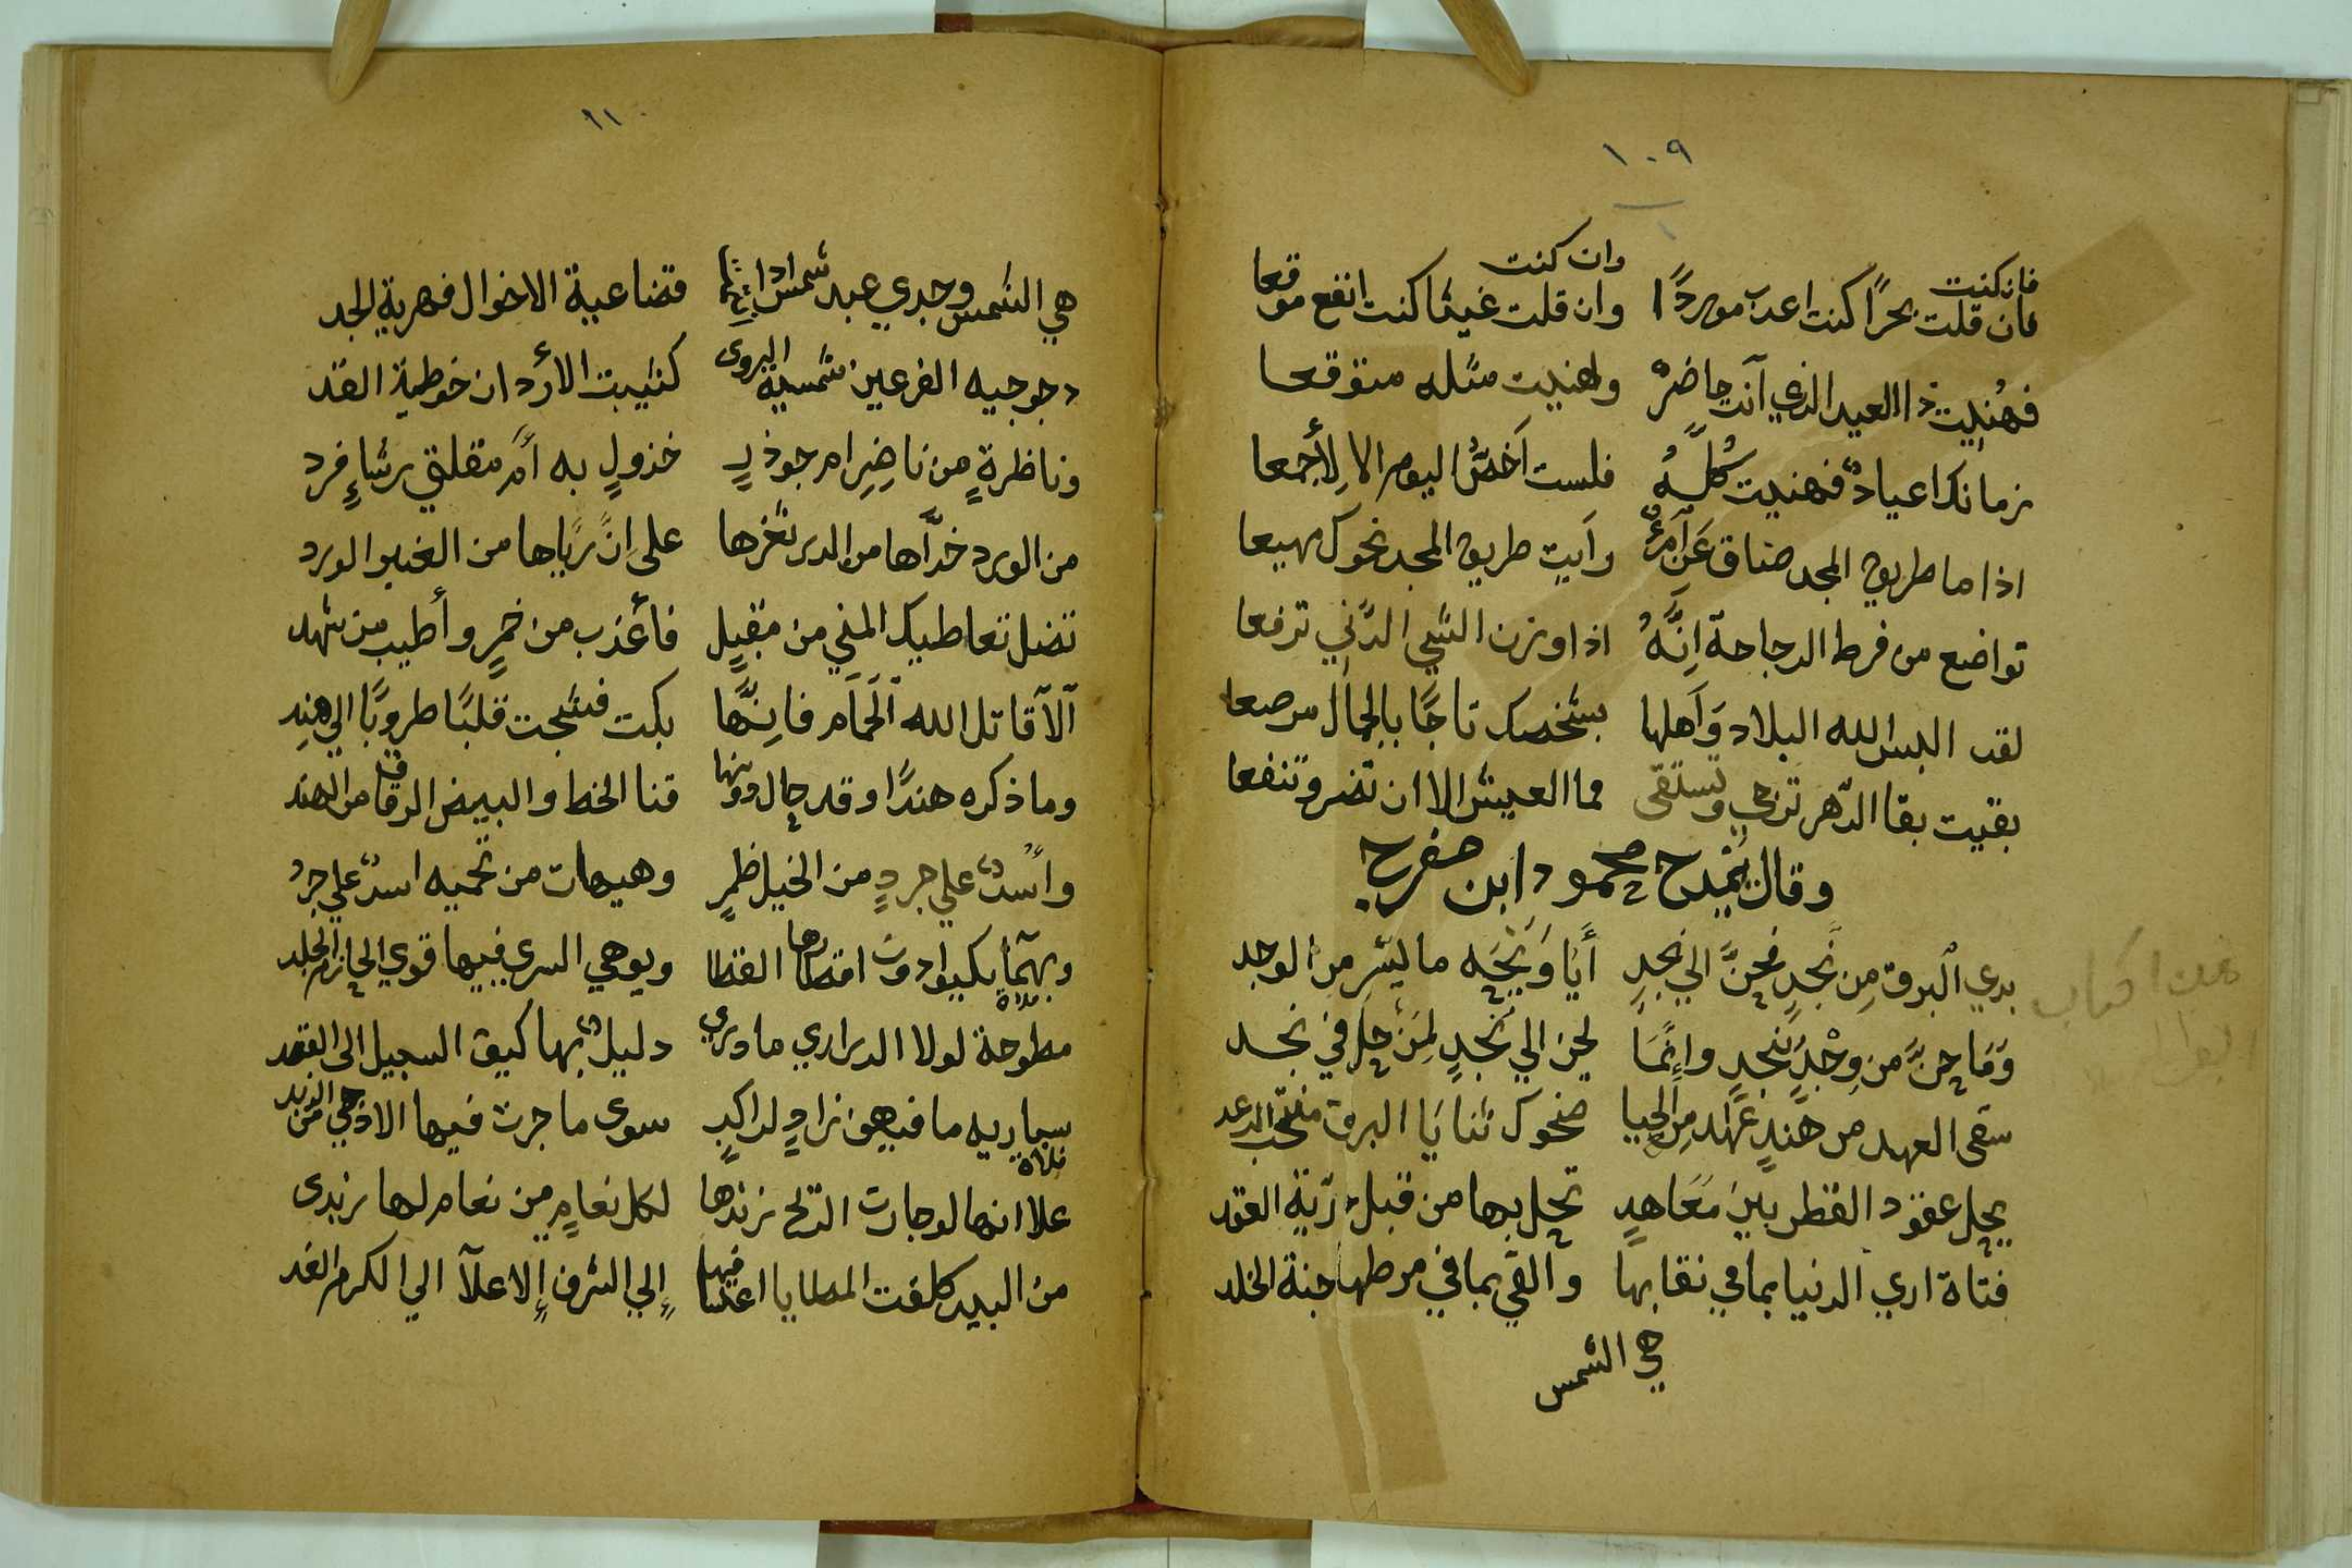 ١٠٩
فان كنت وان كنت
فان قلت بحرًا كنت اعذب موردًا وان قلت غيثا كنت انفع موقعا
فهُنيت ذا العيد الذي آنت حاضرٌ ولهنيت مثله متوقعا
زمانك اعيادٌ فهنيت كُلَّهُ فلست آخصُّ اليوم الا لِأجمعا
اذا ما طريق المجد ضاق عَن آمرُءٌ رآيت طريق المجد نحوك مهيعا
تواضع من فرط الرجاحة اِنَّهُ اذا وزن الشيي الدَّنِي ترفعا
لقد البس الله البلاد وَآهلها بشخصك تاجًا بالجمال مرصعا
بقيت بقا الدّهر ترجى وتستقى فما العيش الا ان تضر وتنفعا
وقال يَمدح محمود ابن مفرح
بدي البرق مِن نَجدٍ فحنَّ الي نجدٍ أيَا وَيْحَه ما ليشر من الوجد
وَمَا حنَّ من وِجْدٍ بنجدٍ وإنَّمَا يحن الي نَجدٍ لِمَنْ حل في نجد
سقى العهد من هندٍ عهَاد مِن الحيا ضحوك ثنايَا البرق منتحب الرعد
يحل عقود القطر بين مَعَاهدٍ تحل بها من قبل ربّة العقد
فتاة اري الدنيا بما في نقابها والقي بما في مرطها جنة الخلد
هي الشمس
١١٠
هي الشمس وجدي عبد شمس قضاعية الاخوال فهرية الجد
الفرعين شمسية كثيبت الأردان خوطية القد
وناظرةٍ من ناضِرِ ام جوذرٍ خذولٍ به أمّ مقلتي رشاءٍ فرد
من الورد خدَّاها من الدر ثغرها على انَّ ريَّاها من العنبر الورد
تضل تعاطيك المني من مقبلٍ فأعذب من خمرٍ وأطيب من شهد
آلآ قاتل الله آلحَمَام فانِهَّا بكت فشجت قلبًا طروبًا الي هندِ
وما ذكره هندًا وقد حال دونها قنا الخط والبيض الرقاق من الهند
وأُسْدٌ علي جردٍ من الخيل ضمرٍ وهيهات من تحميه اسدٌ علي جردُ
يكبوا دون اقصاها القطا ويوهي السرى فيها قوي الحازم الجلد
مطوحة لولا الدراري ما دري دليلٌ بها كيف السبيل الى القصد
ما فيهن زادٍ لراكبٍ سوى ما جرت فيها الاذحي من الربد
فلاة
علا انها لو جارت الدلح زندها لكل نعامٍ من نعام لها زبدى
من البيد كلفت المطايا اعتسافها إلي الشرف إلا علآ الي الكرم الغد